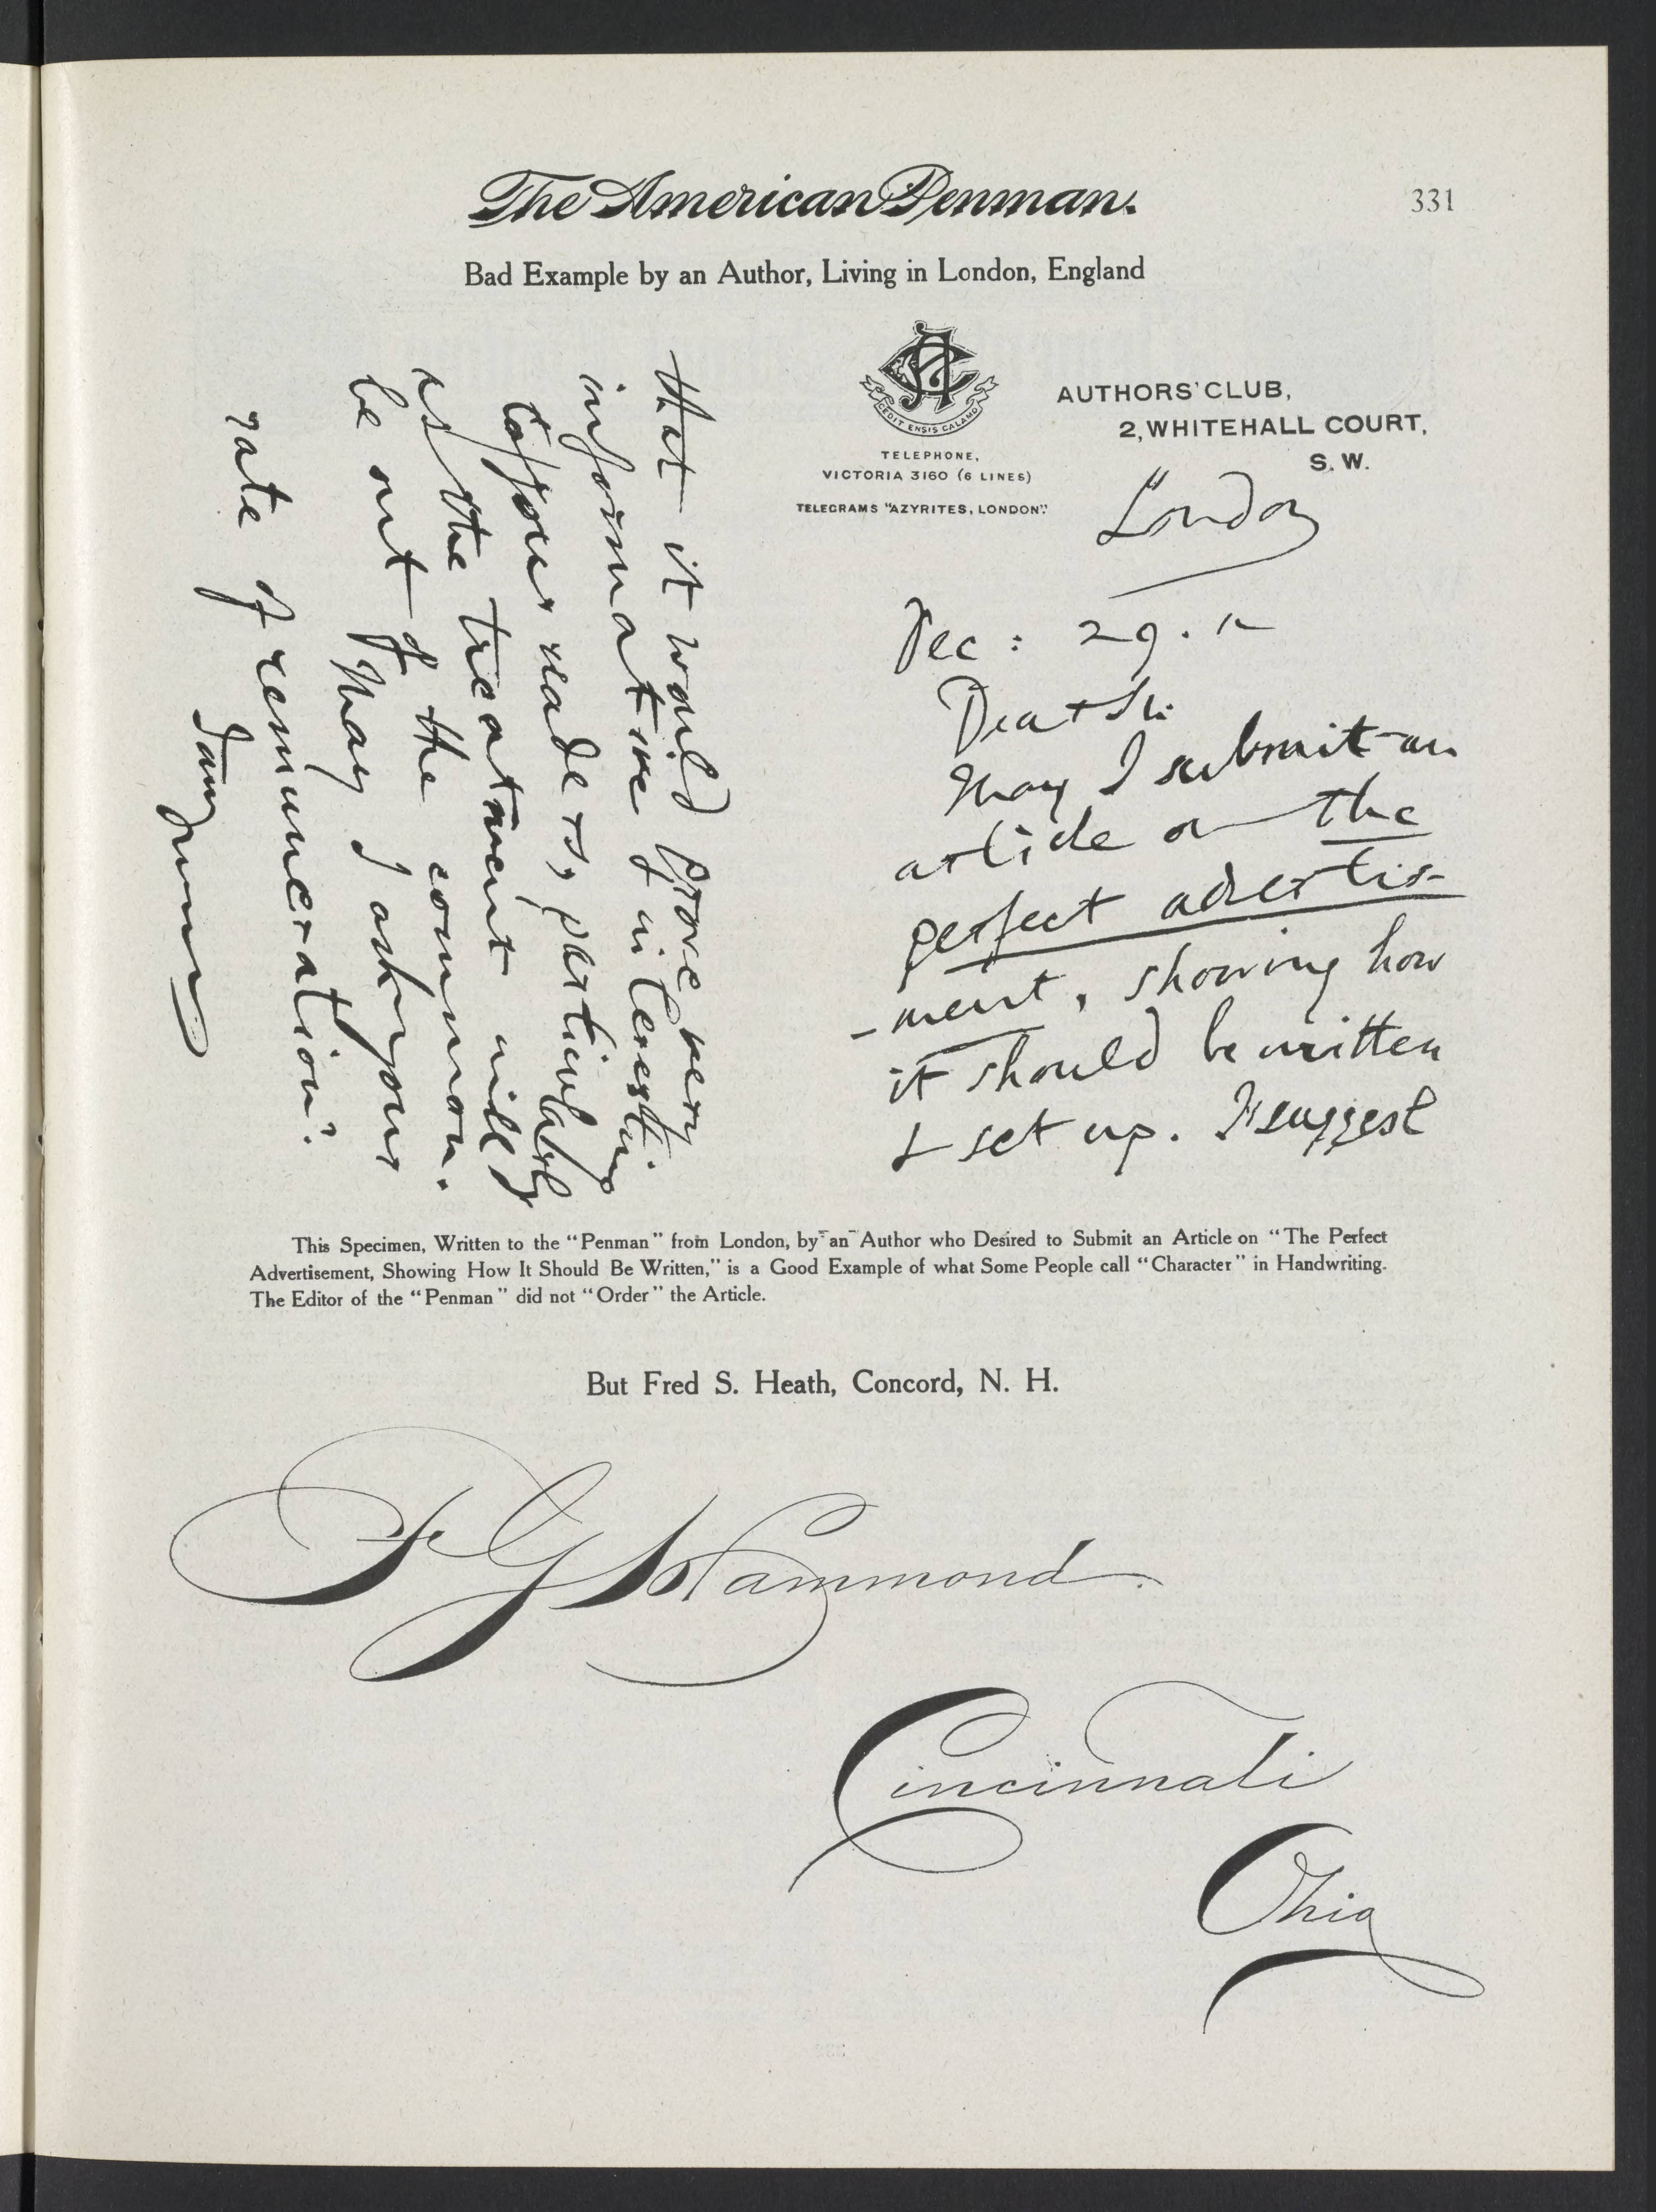 The American Penman.
331
Bad Example by an Author, Living in London, England
CEDIT ENSIS CALAMO
TELEPHONE,
VICTORIA 3160 (6 LINES)
TELEGRAMS "AZYRITES, LONDON".
AUTHORS' CLUB,
2, WHITEHALL COURT,
S. W.
London
Dec : 29. 12
Dear Sir
May I submit an
article on the
perfect advertis-
-ment, showing how
it should be written
& set up. I suggest
that it would prove very
informative & interesting
to your readers, particularly
as the treatment will
be out of the common.
May I ask your
rate of remuneration?
This Specimen, Written to the "Penman" from London, by an Author who Desired to Submit an Article on "The Perfect
Advertisement, Showing How It Should Be Written," is a Good Example of what Some People call "Character" in Handwriting.
The Editor of the "Penman" did not "Order" the Article.
But Fred S. Heath, Concord, N. H.
F G Hammond.
Cincinnati
Ohio